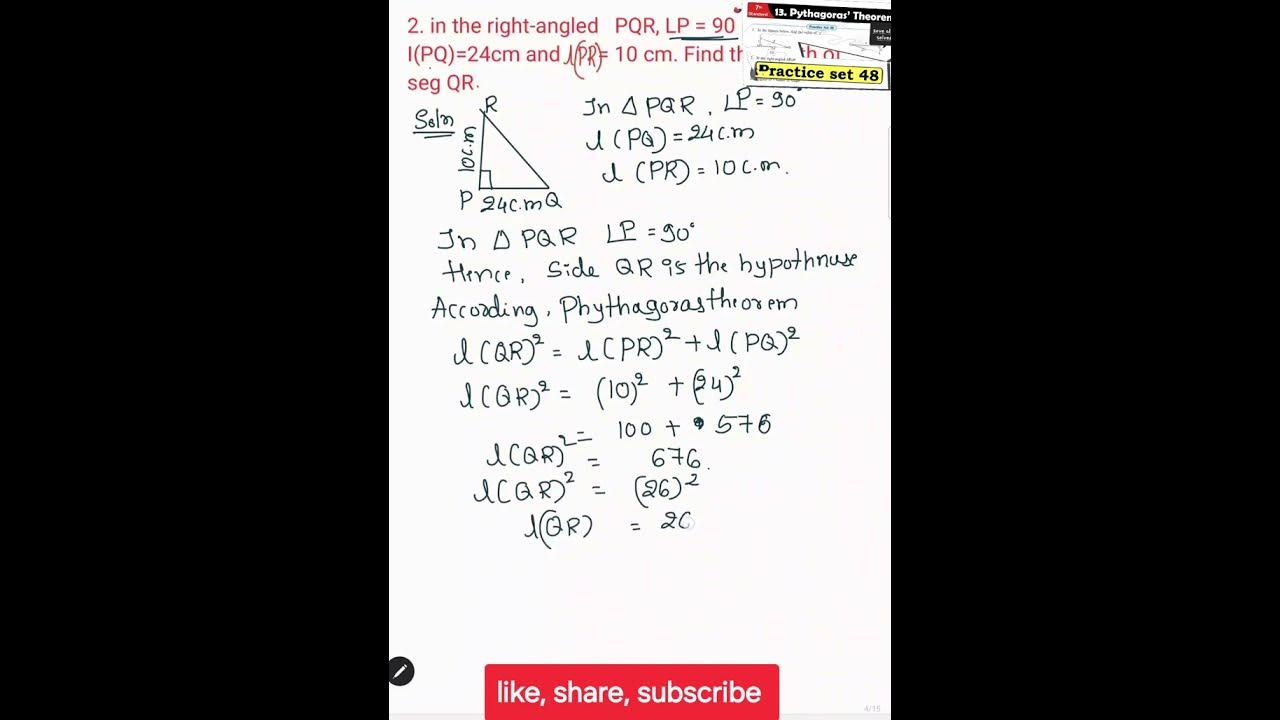 2. in the right-angled PQR, LP = 90
l(PQ)=24cm and l(PR)= 10 cm. Find th
seg QR.
7th Standard
13. Pythagoras' Theorem
Practice set 48
Soln
R
10c.m
P 24c.m Q
In △ PQR, LP = 90°
l (PQ) = 24c.m
l (PR) = 10 c.m.
In △ PQR LP = 90°
Hence, Side QR is the hypothnuse
According, Phythagoras theorem
l(QR)² = l(PR)² + l(PQ)²
l(QR)² = (10)² + (24)²
= 100 + 576
l(QR)² = 676.
l(QR)² = (26)²
l(QR) = 26
like, share, subscribe
4/15